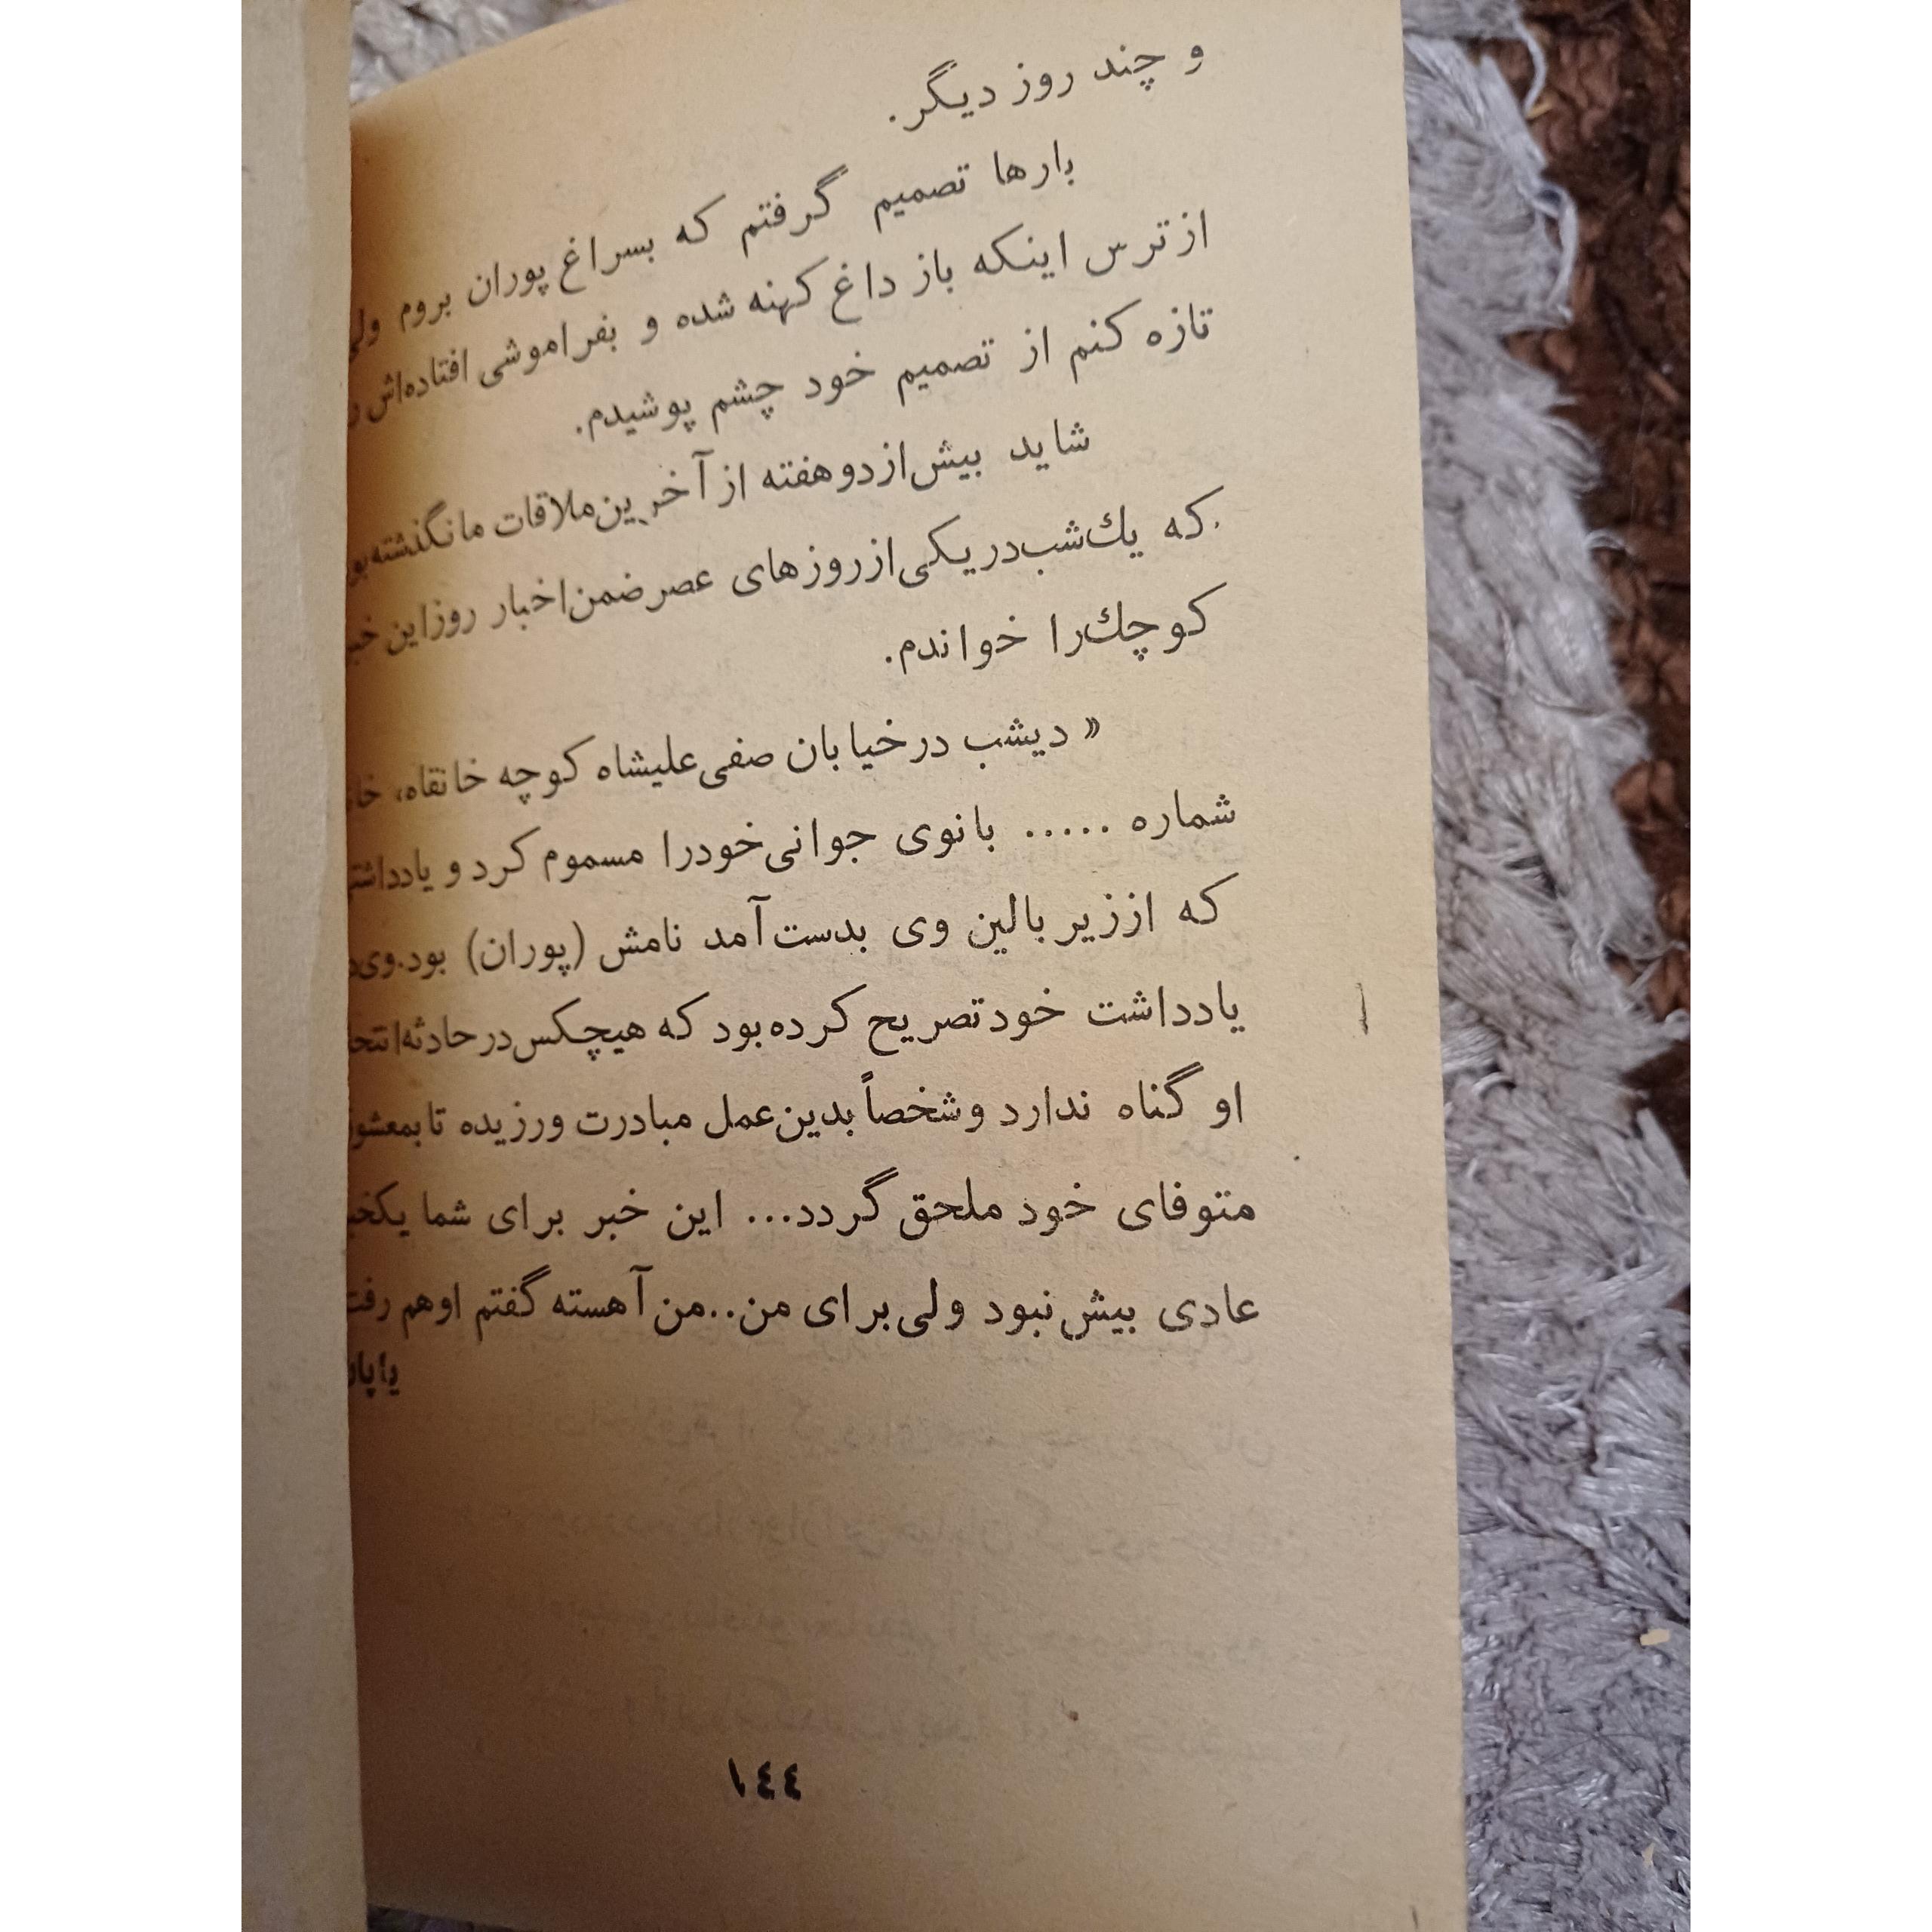 و چند روز دیگر.
بارها تصمیم گرفتم که بسراغ پوران بروم
از ترس اینکه باز داغ کهنه شده و بفراموشی افتاده‌اش
تازه کنم از تصمیم خود چشم پوشیدم.
شاید بیش از دو هفته از آخرین ملاقات ما نگذشته
که یك شب در یکی از روزهای عصر ضمن اخبار روز این
کوچك را خواندم.
« دیشب در خیابان صفی علیشاه کوچه خانقاه،
شماره ..... بانوی جوانی خود را مسموم کرد و
که از زیر بالین وی بدست آمد نامش (پوران) بود. وی
یادداشت خود تصریح کرده بود که هیچکس در حادثه
او گناه ندارد و شخصاً بدین عمل مبادرت ورزیده تا
متوفای خود ملحق گردد... این خبر برای شما
عادی بیش نبود ولی برای من.. من آهسته گفتم او هم
۱٤٤